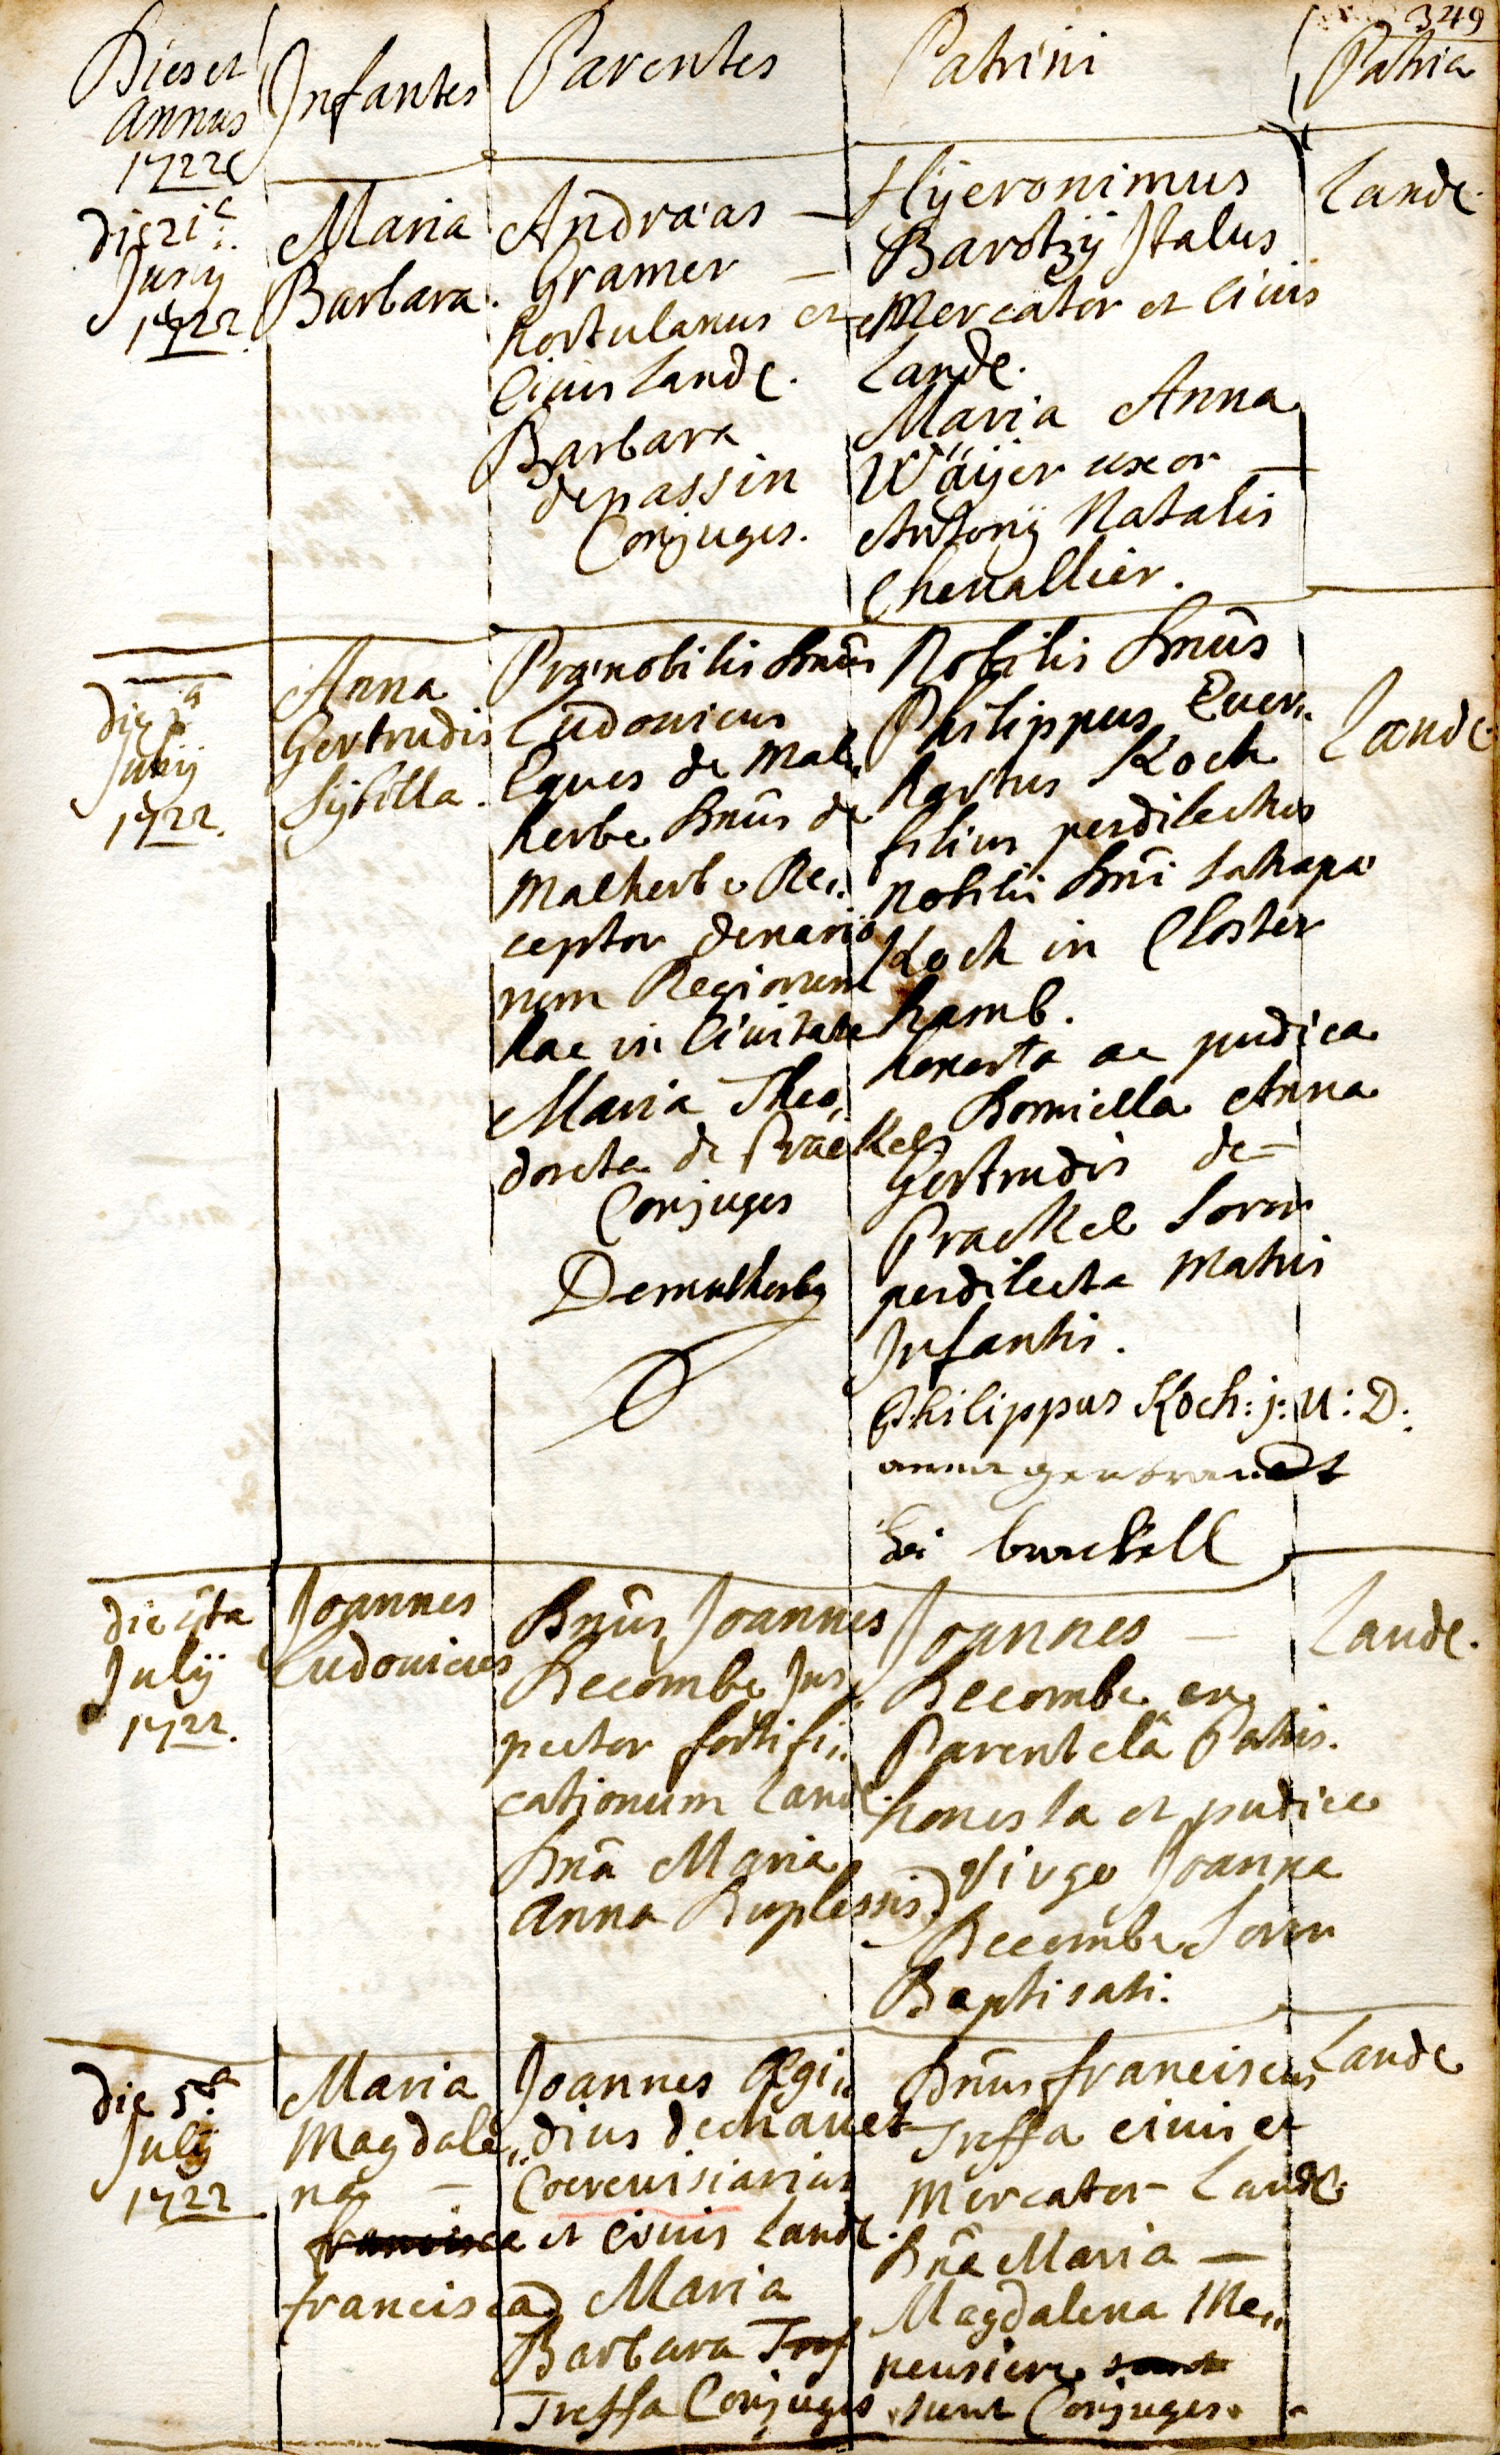 349
Dies et
Annus
1722
Infantes
Parentes
Patrini
Patria
die 21
Juny
1722
Maria
Barbara.
Andræas —
Gramer —
hortulanus et
Civis Landc.
Barbara
depassin
Conjuges.
Hÿeronimus
Barotzÿ Italus
Mercator et Civis
Landc.
Maria Anna
Wäÿer uxor —
Antonÿ Natalis
Chevallier.
Landc.
die 1a
Julÿ
1722.
Anna
Gertrudis
Sÿbilla.
Prænobilis Dnus
Ludovicus
Eques de Mal„
herbe Dnus de
Malherbe Re„
ceptor denario
rum Regiorum
hac in Civitate
Maria Theo„
doreta de Präckel
Conjuges
Demalherbe
Nobilis Dnus
Philippus Ever„
hartus Koch
filius perdilectus
Nobilis Dni Satrapæ
Koch in Closter
hamb.
honesta ac pudica
Domicella Anna
Gertrudis de
Prackel Soror
perdilecta Matris
Infantis.
Philippus Koch: j: U: D:
anna
Landc.
die 4ta
Julÿ
1722.
Joannes
Ludovicus
Dnus Joannes
Decombe Ins„
pector fortifi„
cationum Landc.
Dna Maria
Anna Duplessis
Joannes —
Decombe ex
Parentelâ Patris.
honesta et pudica
Virgo Joanna
Decombe Soror
Baptisati.
Landc.
Die 5ta
July
1722.
Maria
Magdale„
na —
francisca
francisca
Joannes Ægi„
dius dechauet
Coerevisiarius
et Civis Landc.
Maria
Barbara Tref
Treffa Conjuges
Dnus franciscus
Treffa civis et
Mercator Landc.
Dna Maria —
Magdalena Me„
neusiere
sunt Conjuges.
Landc